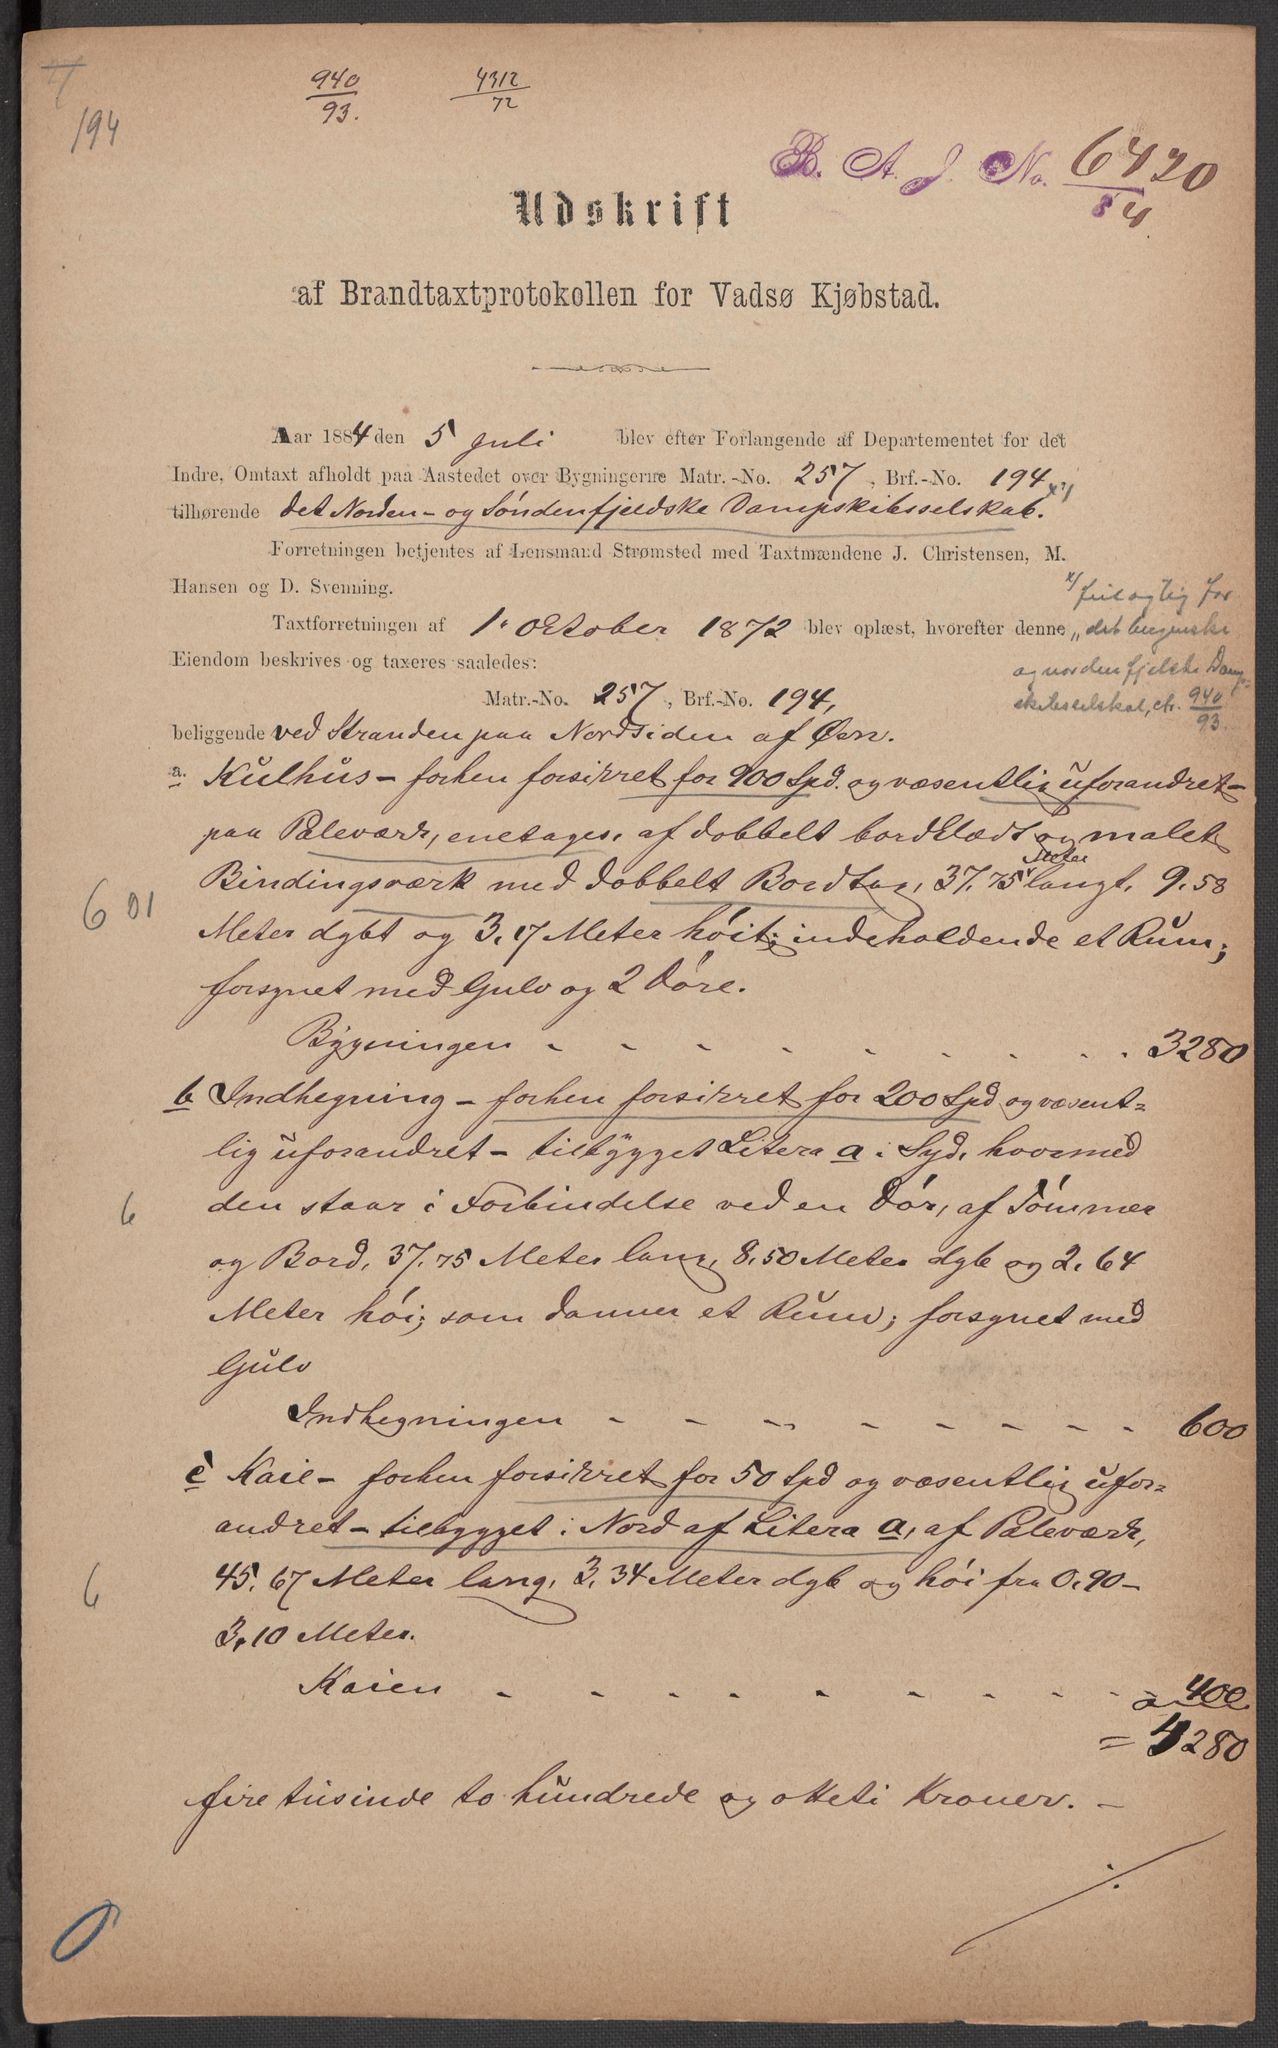 194
940
93.
4312
72
B. A. J. No. 6420
84
Udskrift
af Brandtaxtprotokollen for Vadsø Kjøbstad.
Aar 1884 den 5 Juli blev efter Forlangende af Departementet for det
Indre, Omtaxt afholdt paa Aastedet over Bygningerne Matr.-No. 257, Brf.-No. 194 x)
tilhørende det Norden- og Søndenfjeldske Dampskibsselskab.
Forretningen betjentes af Lensmand Strømsted med Taxtmændene J. Christensen, M.
Hansen og D. Svenning.
Taxtforretningen af 1. October 1872 blev oplæst, hvorefter denne
Eiendom beskrives og taxeres saaledes:
x) feilagtig for
„det bergenske
og nordenfjelske Damp-
skibsselskab, cfr. 940
93.
Matr.-No. 257, Brf.-No. 194,
beliggende ved Stranden paa Nordsiden af Øen.
a. Kulhus - forhen forsikret for 900 Spd. og væsentlig uforandret -
paa Peleværk, enetages, af dobbelt bordklædt og malet
Bindingsværk med dobbelt Bordtag, 37.75 Meter langt, 9.58
601
Meter dybt og 3.17 Meter høit; indeholdende et Rum;
forsynet med Gulv og 2 Døre.
Bygningen - - - - - - - - 3280
b Indhegning - forhen forsikret for 200 Spd og væsent-
lig uforandret - tilbygget Litera a i Syd, hvormed
den staar i Forbindelse ved en Dør, af Tømmer
6
og Bord, 37.75 Meter lang, 8.50 Meter dyb og 2.64
Meter høi; som danner et Rum; forsynet med
Gulv
Indhegningen - - - - - - - 600
c Kaie - forhen forsikret for 50 Spd og væsentlig ufor-
andret - tilbygget i Nord af Litera a, af Peleværk,
45.67 Meter lang, 3.34 Meter dyb og høi fra 0.90 -
6
3.10 Meter.
Kaien - - - - - - - - 400
= 4280
fire tusinde to hundrede og otteti Kroner. -